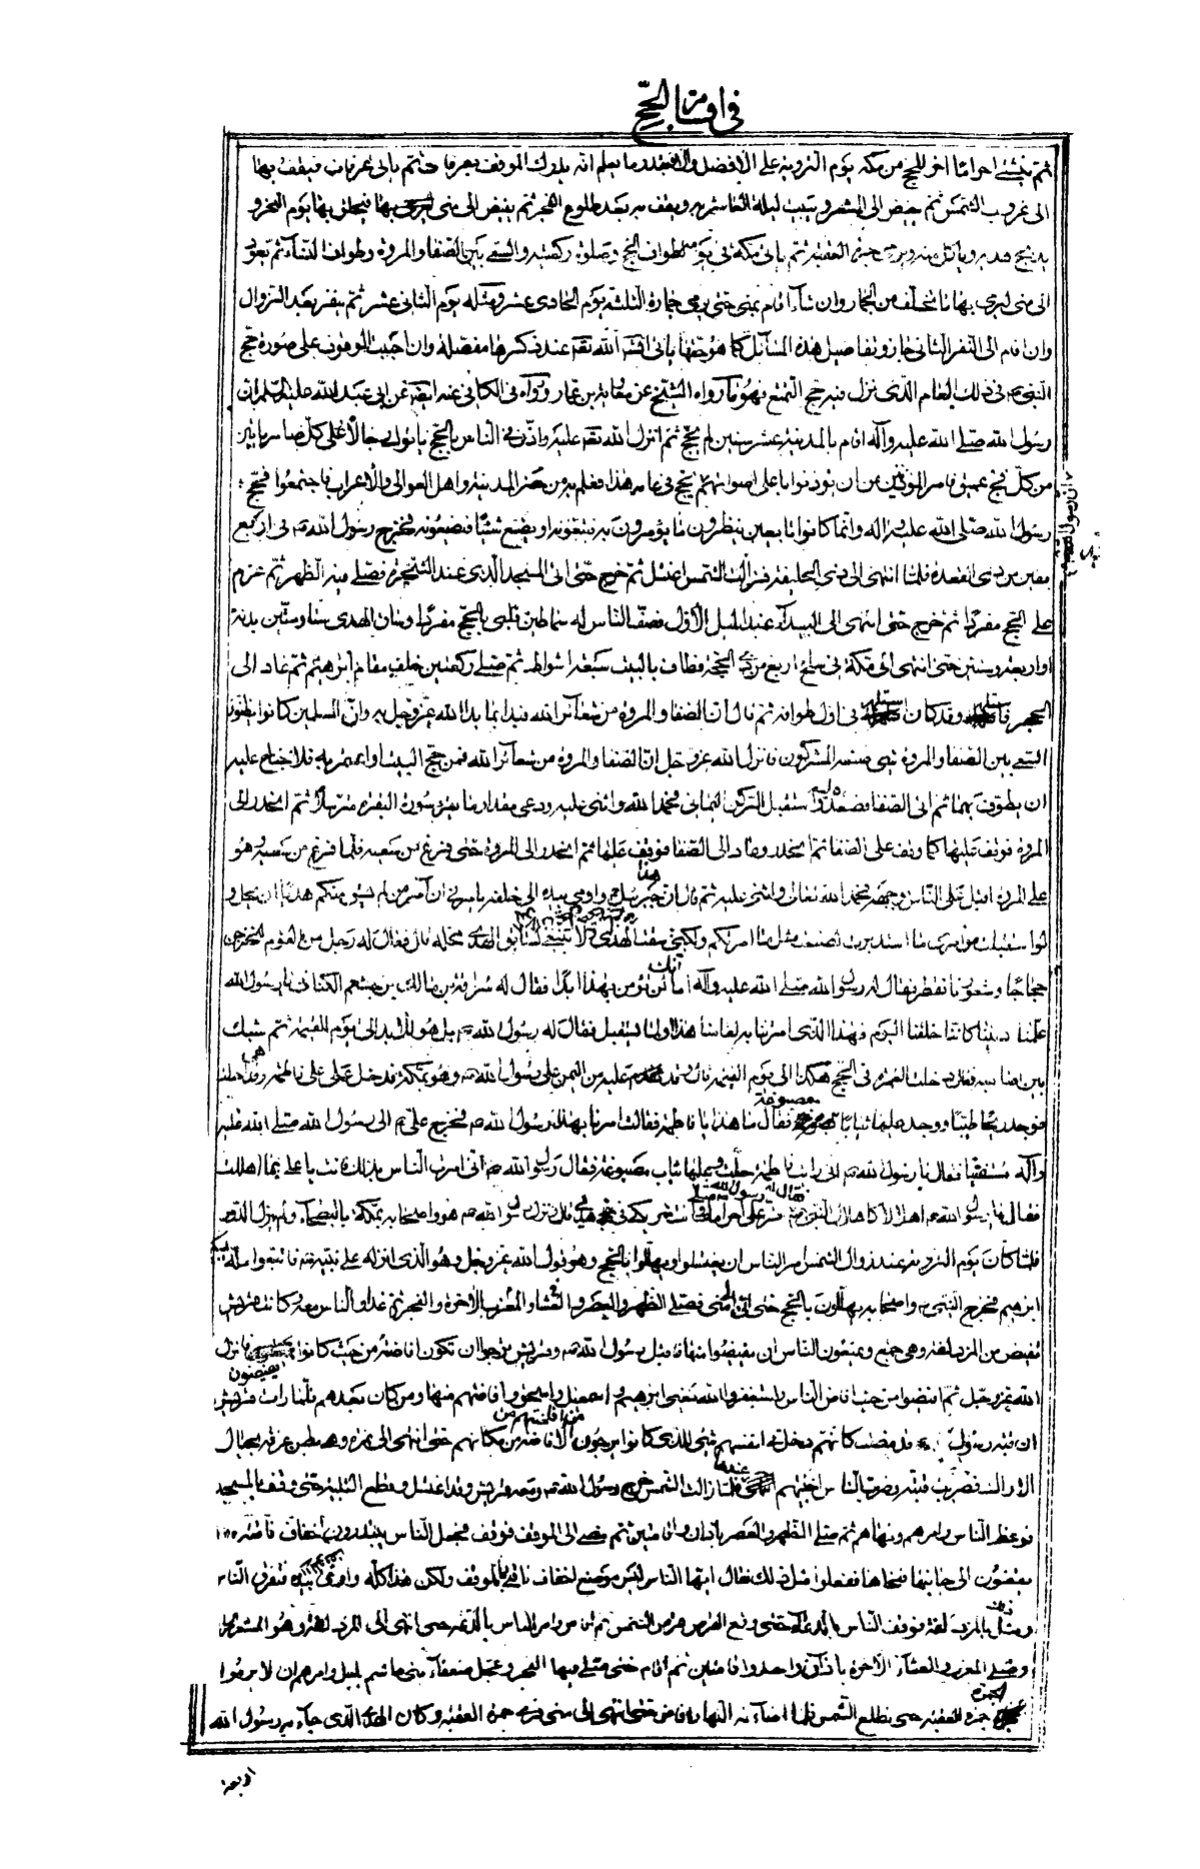 في اقسام الحج
ثم ينشئ احراما اخر للحج من مكة يوم التروية على الافضل والا فبقدر ما يعلم انه يدرك الموقف بعرفة ثم ياتى عرفات فيقف بها
الى غروب الشمس ثم يفيض الى المشعر ويبيت ليلة العاشر به ويقف به بعد طلوع الفجر ثم يفيض الى منى فيحلق بها يوم النحر و
يذبح هديه وياكل منه ويرمى جمرة العقبة ثم ياتى مكة فى يومه لطواف الحج وصلوة ركعتيه والسعى بين الصفا والمروة وطواف النساء ثم يعود
الى منى ليرمى بها ما تخلف من الجمار وان شاء اقام بمنى حتى يرمى جماره الثلثة يوم الحادى عشر ومثله يوم الثانى عشر ثم ينفر بعد الزوال
وان اقام الى النفر الثانى جاز وتفاصيل هذه المسائل كما هو حقها ياتى انشاء الله تعالى عند ذكرها مفصلة وان احببت الوقوف على صورة حج
النبى ص فى ذلك العام الذى نزل فيه حج التمتع فهو ما رواه الشيخ عن معاوية بن عمار ورواه فى الكافى عنه ايضا عن ابى عبد الله عليه السلم ان
رسول الله صلى الله عليه وآله اقام بالمدينة عشر سنين لم يحج ثم انزل الله تعالى عليه واذن فى الناس بالحج ياتوك رجالا وعلى كل ضامر ياتين
من كل فج عميق فامر المؤذنين ان يؤذنوا باعلى اصواتهم يحج فى عامه هذا فعلم به من حضر المدينة واهل العوالى والاعراب فاجتمعوا فحج
رسول الله صلى الله عليه وآله وانما كانوا تابعين ينظرون ما يؤمرون به فيتبعونه او يصنع شيئا فيصنعونه فخرج رسول الله ص فى اربع
بقين من ذى القعدة فلما انتهى الى ذى الحليفة فزالت الشمس اغتسل ثم خرج حتى اتى المسجد الذى عند الشجرة فصلى فيه الظهر ثم عزم
على الحج مفردا ثم خرج حتى انتهى الى البيداء عند الميل الاول فصف الناس له سماطين فلبى بالحج مفردا وساق الهدى ستا وستين بدنة
او اربعة وستين حتى انتهى الى مكة فى سلخ اربع من ذى الحجة فطاف بالبيت سبعة اشواط ثم صلى ركعتين خلف مقام ابرهيم ثم عاد الى
الحجر فاستلمه وقد كان استلمه فى اول طوافه ثم قال ان الصفا والمروة من شعائر الله فيدا بما بدا الله عز وجل به وان المسلمين كانوا يظنون
السعى بين الصفا والمروة شئ صنعه المشركون فانزل الله عز وجل ان الصفا والمروة من شعائر الله فمن حج البيت او اعتمر فلا جناح عليه
ان يطوف بهما ثم اتى الصفا فصعد عليه واستقبل الركن اليمانى فحمد الله واثنى عليه ودعى مقدار ما يقرء سورة البقرة مترسلا ثم انحدر الى
المروة فوقف عليها كما وقف على الصفا ثم انحدر وعاد الى الصفا فوقف عليها ثم انحدر الى المروة حتى فرغ من سعيه فلما فرغ من سعيه وهو
على المروة اقبل على الناس بوجهه فحمد الله تعالى واثنى عليه ثم قال ان هذا جبرئيل واومى بيده الى خلفه يامرنى ان آمر من لم يسق منكم هديا ان يحل و
لو استقبلت من امرى ما استدبرت لصنعت مثل ما امرتكم ولكنى سقت الهدى ولا ينبغى لسائق الهدى ان يحل حتى يبلغ الهدى محله قال فقال له رجل من القوم لنخرجن
حجاجا وشعورنا تقطر فقال له رسول الله صلى الله عليه وآله اما انك لن تؤمن بهذا ابدا فقال له سراقة بن مالك بن جعشم الكنانى يا رسول الله
علمنا ديننا كاننا خلقنا اليوم فهذا الذى امرتنا به لعامنا هذا ولما يستقبل فقال له رسول الله ص بل هو للابد الى يوم القيمة ثم شبك
بين اصابعه فقال دخلت العمرة فى الحج هكذا الى يوم القيمة قال وقدم على ع من اليمن على رسول الله ص وهو بمكة فدخل على فاطمة وهى قد احلت
فوجد ريحا طيبا ووجد عليها ثيابا مصبوغة فقال ما هذا يا فاطمة فقالت امرنا بهذا رسول الله ص فخرج على ع الى رسول الله صلى الله عليه
وآله مستفتيا فقال يا رسول الله ص انى رايت فاطمة قد احلت وعليها ثياب مصبوغة فقال رسول الله ص انى امرت الناس بذلك فانت يا على بما اهللت
فقال يا رسول الله ص اهلالا كاهلال النبى ص فقال له رسول الله ص قر على احرامك وانت شريكى فى هديى قال ونزل رسول الله ص هو واصحابه بمكة بالبطحاء ولم ينزل الدور
فلما كان يوم التروية عند زوال الشمس امر الناس ان يغتسلوا ويهلوا بالحج وهو قول الله عز وجل وهو الذى انزله على نبيه ص فاتبعوا ملة ابيكم
ابرهيم فخرج النبى ص واصحابه يهلون بالحج حتى اتى منى فصلى الظهر والعصر والمغرب والعشاء الاخرة والفجر ثم غدا والناس معه وكانت قريش
تفيض من المزدلفة وهى جمع ويمنعون الناس ان يفيضوا منها فاقبل رسول الله ص وقريش ترجوا ان تكون افاضته من حيث كانوا يفيضون فانزل
الله عز وجل ثم افيضوا من حيث افاض الناس واستغفروا الله يعنى ابرهيم واسمعيل واسحق فى افاضتهم منها ومن كان بعدهم فلما رات قريش
ان قبة رسول الله ص قد مضت كانه دخل فى انفسهم شئ للذى كانوا يرجون من الافاضة من مكانهم حتى انتهى الى نمرة وهى بطن عرنة بحيال
الاراك فضربت قبته وضرب الناس اخبيتهم عندها فلما زالت الشمس خرج رسول الله ص ومعه قريش وقد اغتسل وقطع التلبية حتى وقف بالمسجد
فوعظ الناس وامرهم ونهاهم ثم صلى الظهر والعصر باذان واقامتين ثم مضى الى الموقف فوقف به فجعل الناس يبتدرون اخفاف ناقته
يقفون الى جانبها فنحاها ففعلوا مثل ذلك فقال ايها الناس ليس موضع اخفاف ناقتى بالموقف ولكن هذا كله واومى بيده فتفرق الناس
وفعل مثل ذلك بالمزدلفة فوقف الناس بالدعاء حتى وقع القرص قرص الشمس ثم افاض وامر الناس بالدعة حتى انتهى الى المزدلفة وهو المشعر الحرام
وصلى المغرب والعشاء الاخرة باذان واحد واقامتين ثم اقام حتى صلى فيها الفجر وعجل ضعفاء بنى هاشم بليل وامرهم ان لا يرموا
الجمرة جمرة العقبة حتى تطلع الشمس فلما اضاء له النهار افاض حتى انتهى الى منى فرمى جمرة العقبة وكان الهدى الذى جاء به رسول الله
اربعة